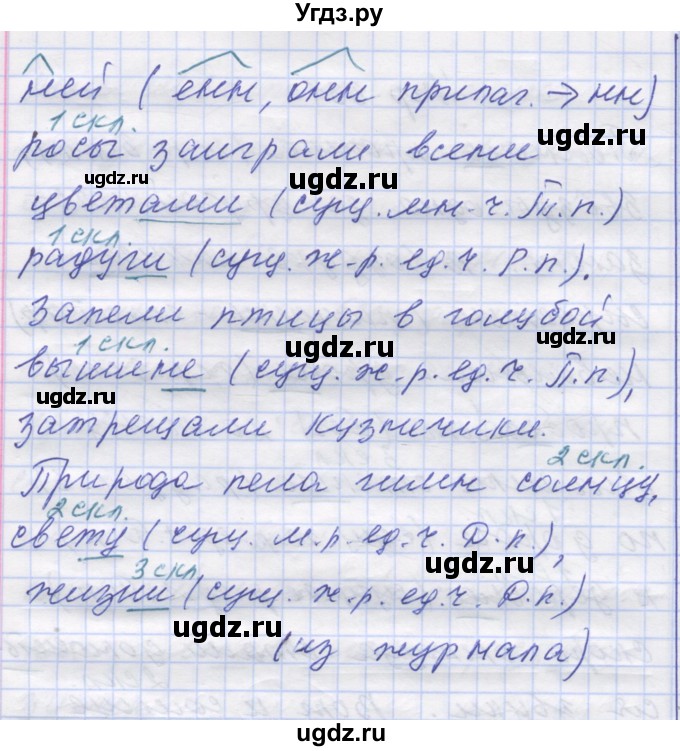 Угдз.ру
ней (енн, онн прилаг. → нн)
1 скл.
росы заиграли всеми
цветами (сущ. мн. ч. Т. п.)
1 скл.
радуги (сущ. ж. р. ед. ч. Р. п.).
Запели птицы в голубой
1 скл.
вышине (сущ. ж. р. ед. ч. П. п.),
затрещали кузнечики.
2 скл.
Природа пела гимн солнцу,
2 скл.
свету (сущ. м. р. ед. ч. Д. п.),
3 скл.
жизни (сущ. ж. р. ед. ч. Д. п.)
(из журнала)
ugdz.ru
ugdz.ru
ugdz.ru
ugdz.ru
ugdz.ru
ugdz.ru
ugdz.ru
ugdz.ru
ugdz.ru
ugdz.ru
ugdz.ru
ugdz.ru
ugdz.ru
ugdz.ru